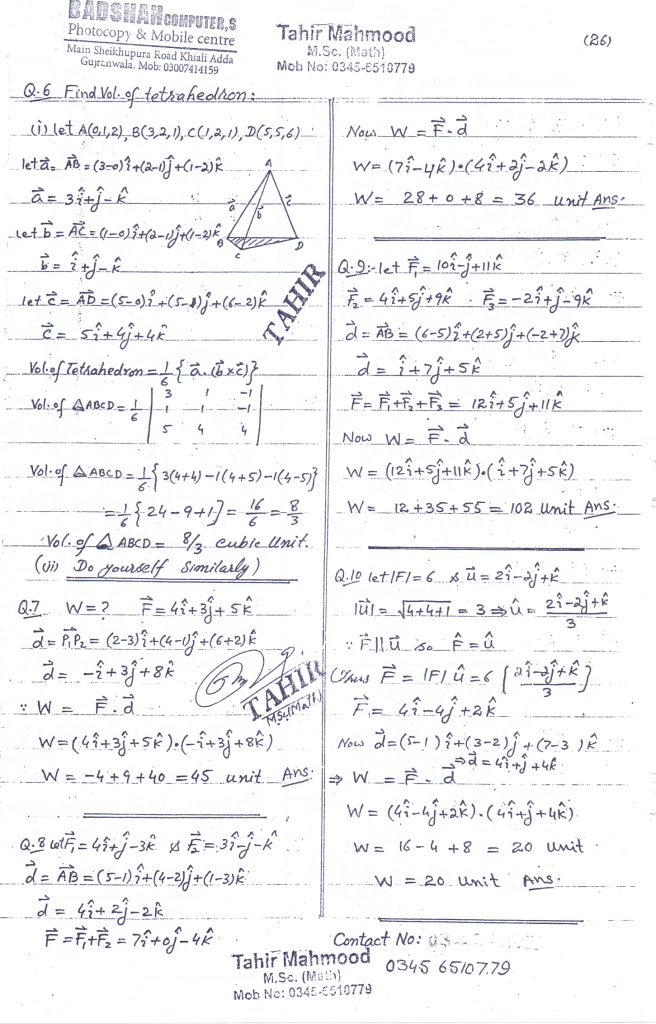 BADSHAH COMPUTER,S
Photocopy & Mobile centre
Main Sheikhupura Road Khiali Adda
Gujranwala. Mob: 03007414159
Tahir Mahmood
M.Sc. (Math)
Mob No: 0345-6510779
(26)
Q.6 Find Vol. of tetrahedron:
(i) let A(0,1,2), B(3,2,1), C(1,2,1), D(5,5,6)
let a⃗ = AB⃗ = (3-0)î+(2-1)ĵ+(1-2)k̂
a⃗ = 3î+ĵ-k̂
let b⃗ = AC⃗ = (1-0)î+(2-1)ĵ+(1-2)k̂
b⃗ = î+ĵ-k̂
let c⃗ = AD⃗ = (5-0)î+(5-1)ĵ+(6-2)k̂
c⃗ = 5î+4ĵ+4k̂
A
a⃗ b⃗ c⃗
B C D
TAHIR
Vol. of Tetrahedron = 1/6 { a⃗ . (b⃗ × c⃗)}
Vol. of △ABCD = 1/6 | 3 1 -1 |
| 1 1 -1 |
| 5 4 4 |
Vol. of △ABCD = 1/6 { 3(4+4) -1(4+5) -1(4-5)}
= 1/6 { 24 - 9 + 1 } = 16/6 = 8/3
Vol. of △ ABCD = 8/3 cubic Unit.
(ii) Do yourself Similarly)
Q.7 W = ? F⃗ = 4î+3ĵ+5k̂
d⃗ = P₁P₂⃗ = (2-3)î+(4-1)ĵ+(6+2)k̂
d⃗ = -î+3ĵ+8k̂
∵ W = F⃗ . d⃗
W = (4î+3ĵ+5k̂).(-î+3ĵ+8k̂)
W = -4+9+40 = 45 unit Ans:
TAHIR
MSc(Math)
Q.8 let F⃗₁ = 4î+ĵ-3k̂ & F⃗₂ = 3î-ĵ-k̂
d⃗ = AB⃗ = (5-1)î+(4-2)ĵ+(1-3)k̂
d⃗ = 4î+2ĵ-2k̂
F⃗ = F⃗₁+F⃗₂ = 7î+0ĵ-4k̂
Now W = F⃗ . d⃗
W = (7î-4k̂).(4î+2ĵ-2k̂)
W = 28+0+8 = 36 unit Ans.
Q.9:- let F⃗₁ = 10î-ĵ+11k̂
F⃗₂ = 4î+5ĵ+9k̂ . F⃗₃ = -2î+ĵ-9k̂
d⃗ = AB⃗ = (6-5)î+(2+5)ĵ+(-2+7)k̂
d⃗ = î+7ĵ+5k̂
F⃗ = F⃗₁+F⃗₂+F⃗₃ = 12î+5ĵ+11k̂
Now W = F⃗ . d⃗
W = (12î+5ĵ+11k̂).(î+7ĵ+5k̂)
W = 12+35+55 = 102 unit Ans.
Q.10 let |F| = 6 & u⃗ = 2î-2ĵ+k̂
|u⃗| = √4+4+1 = 3 ⇒ û = 2î-2ĵ+k̂/3
∵ F⃗ || u⃗ so F̂ = û
Thus F⃗ = |F| û = 6 [2î-2ĵ+k̂/3]
F⃗ = 4î-4ĵ+2k̂
Now d⃗ = (5-1)î+(3-2)ĵ+(7-3)k̂
⇒ d⃗ = 4î+ĵ+4k̂
⇒ W = F⃗ . d⃗
W = (4î-4ĵ+2k̂).(4î+ĵ+4k̂)
W = 16-4+8 = 20 unit
W = 20 unit Ans.
Contact No:
0345 6510779
Tahir Mahmood
M.Sc. (Math)
Mob No: 0345-6510779